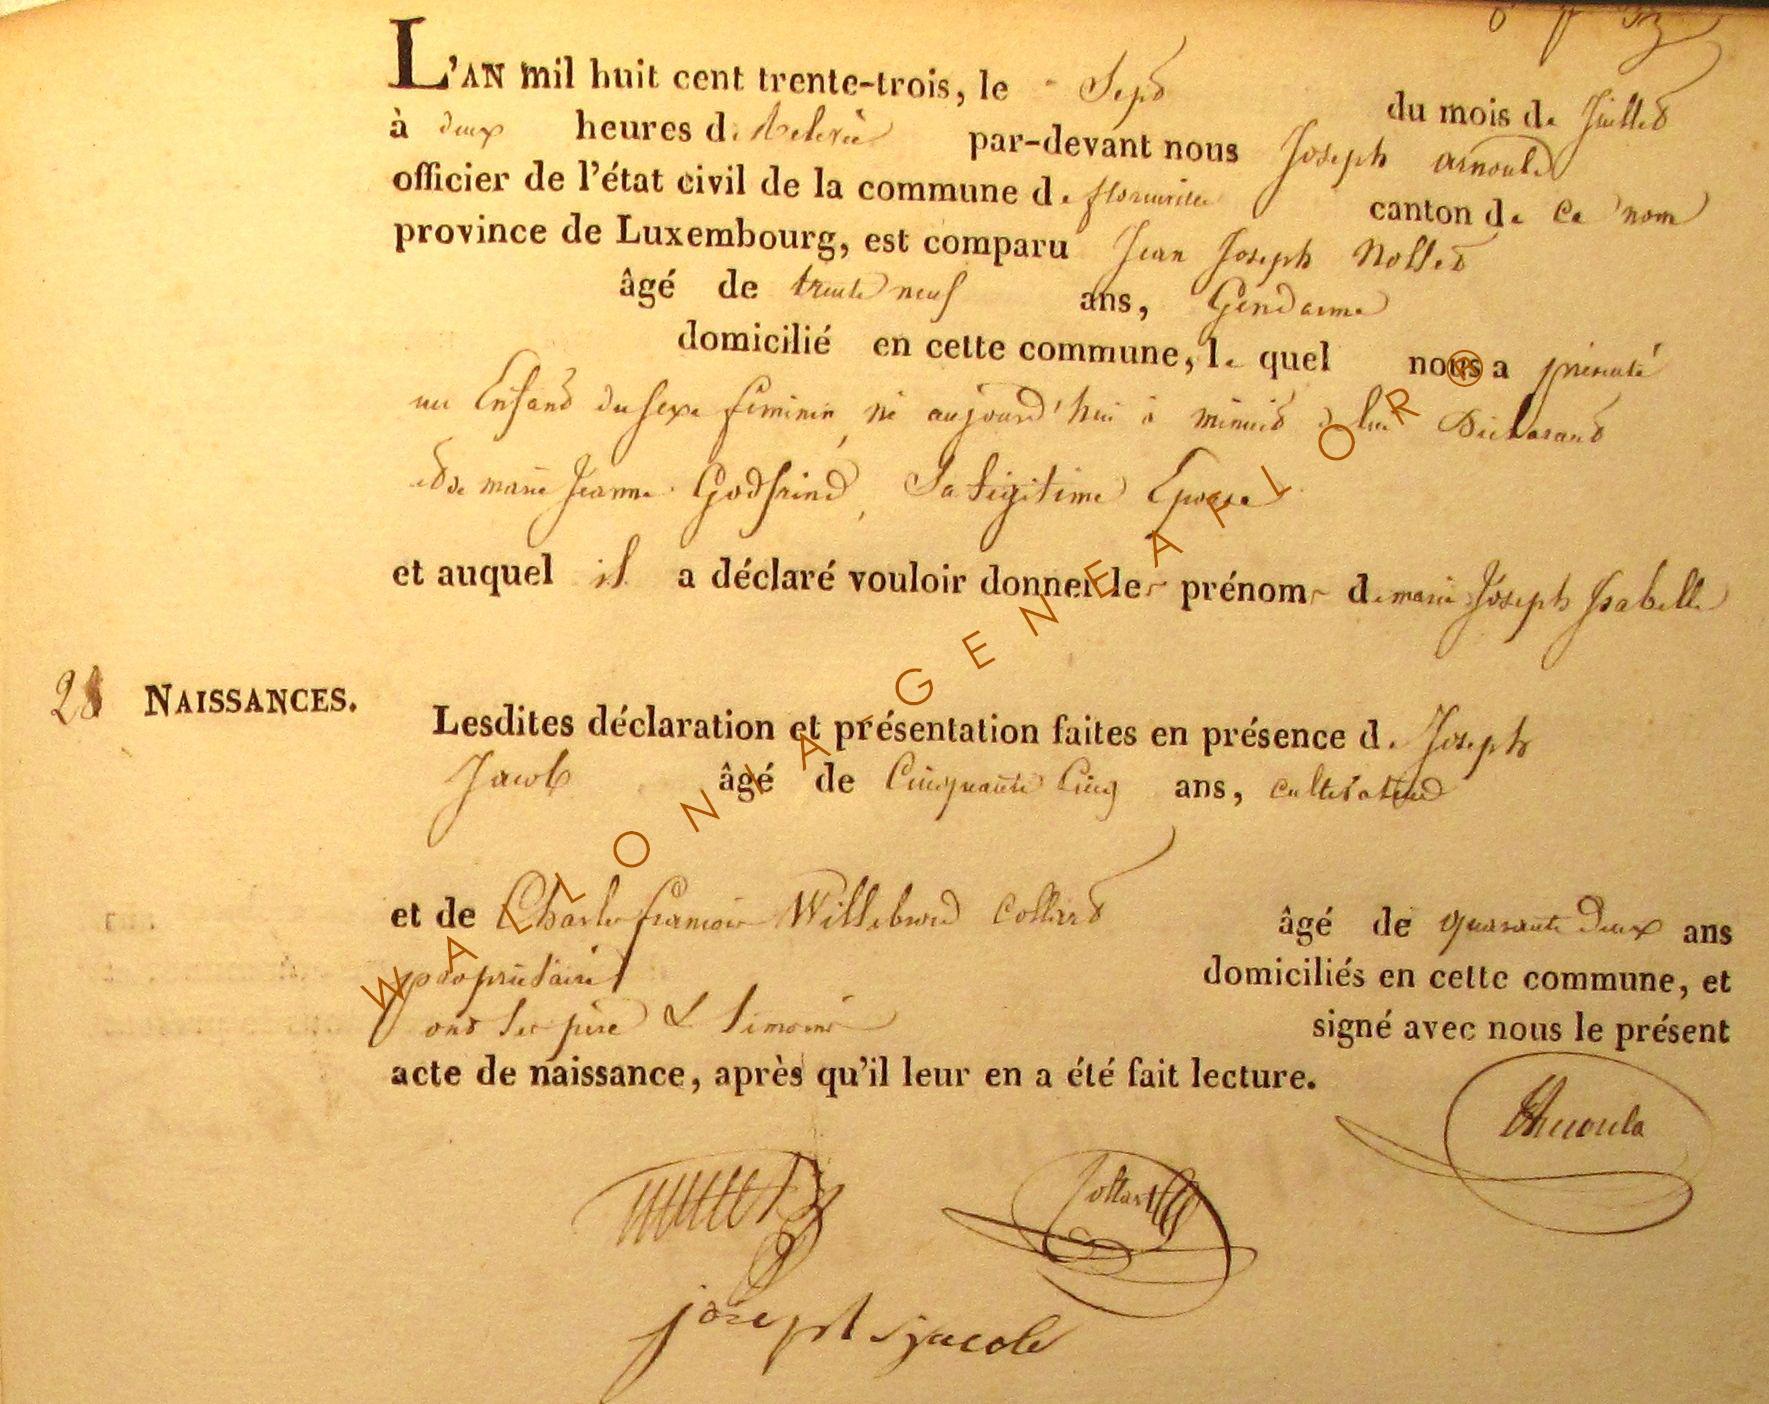 L'AN mil huit cent trente-trois, le Sept du mois de Juillet
à deux heures de Relevée par-devant nous Joseph arnould
officier de l'état civil de la commune de florenville canton de Ce nom
province de Luxembourg, est comparu Jean Joseph Nollet
âgé de trente neuf ans, Gendarme
domicilié en cette commune, le quel nous a présenté
un Enfant du sexe féminin, né aujourd'hui à minuit de lui Déclarant
et de marie Jeanne Godfrind, Sa légitime Epouse
et auquel il a déclaré vouloir donner les prénoms de marie Joseph Isabelle
28 NAISSANCES.
Lesdites déclaration et présentation faites en présence de Joseph
Jacob âgé de Cinquante Cinq ans, cultivateur
et de Charles françois Willebrord Collard âgé de quarante deux ans
propriétaire domiciliés en cette commune, et
ont les père & témoins signé avec nous le présent
acte de naissance, après qu'il leur en a été fait lecture.
Arnould
Collard
joseph jacob
WALLONIA GENEAFLOR ®